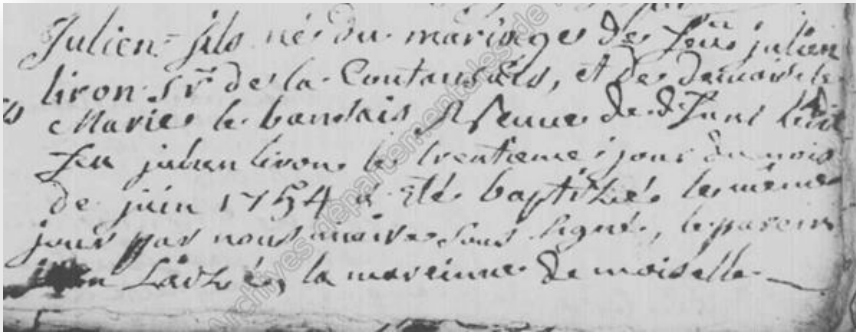 Julien fils né du mariage de feu julien
liron Sr de la Coutansais, et de demoiselle
Marie le bandais veuve de deffunt ledit
feu julien liron le trentieme jour du mois
de juin 1754 a eté baptizé le même
jour par nous maire sous signé, le parein
Larzé, la mareinne demoiselle
Archives départementales de